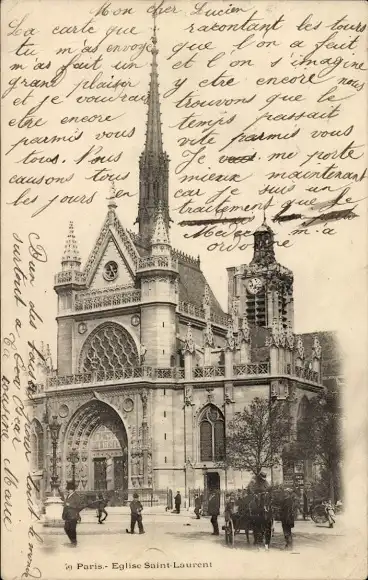 Mon cher Lucien
La carte que
tu m as envoyé
m as fait un
grand plaisir
et je voudrais
être encore
parmis vous
tous. Nous
causons tous
les jours en
racontant les tours
que l'on a fait,
et l'on s'imagine
y être encore nous
trouvons que le
temps passait
vite parmis vous
Je me porte
mieux maintenant
car je suis un
traitement que le
Medecin m. a
ordonné
Bien des
surtout a
Ta cousine Marie
Paris.- Eglise Saint-Laurent